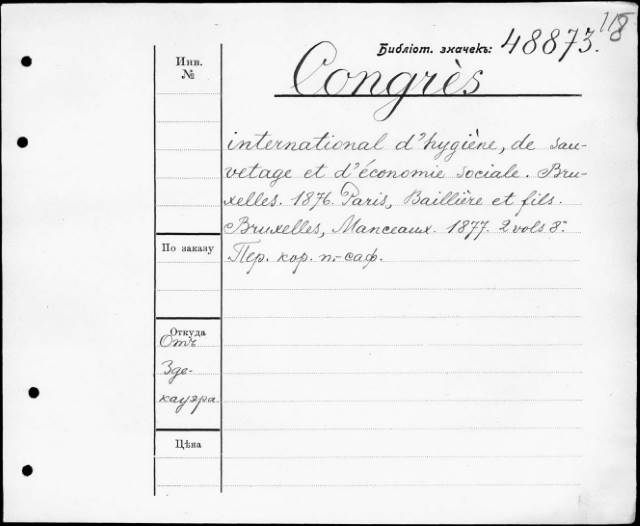 118
Библіот. значекъ: 48873.
Инв.
№
Congrès
international d'hygiène, de sau-
vetage et d'économie sociale. Bru-
xelles. 1876. Paris, Baillière et fils.
Bruxelles, Manceaux. 1877. 2 vols 8º.
Пер. кор. п.-саф.
По заказу
Откуда
Отъ
Зде-
кауэра
Цѣна